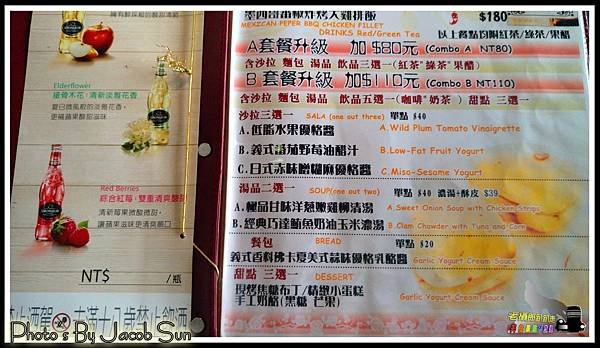 Elderflower
接骨木花，清新淡雅花香
夏日微風般的淡雅花香，
更襯蘋果酸甜滋味
Red Berries
綜合紅莓，雙重清爽酸甜
清新莓果微酸微甜，
讓蘋果滋味更清爽順口
NT$ /瓶
止酒駕 未滿十八歲禁止飲酒
墨西哥香椒炸烤大雞排飯 $180
MEXICAN PEPER BBQ CHICKEN FILLET
DRINKS Red/Green Tea 以上餐點均附紅茶/綠茶/果醋
A 套餐升級 加 $80元 (Combo A NT80)
含沙拉 麵包 湯品 飲品三選一(紅茶˙綠茶˙果醋)
B 套餐升級 加$110元 (Combo B MT110)
含沙拉 麵包 湯品 飲品五選一(咖啡˙奶茶 ) 甜點 三選一
沙拉三選一 SALA (one out three) 單點 $40
A.低脂水果優格醬 A.Wild Plum Tomato Vinaigrette
B.義式番茄野莓油醋汁 B.Low-Fat Fruit Yogurt
C.日式赤味噌糊麻優格醬 C.Miso-Sesame Yogurt
湯品二選一 SOUP(one out two) 單點 $40 濃湯+酥皮 $39
A.極品甘味洋蔥嫩雞柳清湯 A.Sweet Onion Soup with Chicken Strips
B.經典巧達鮪魚奶油玉米濃湯 B.Clam Chowder with Tuna and Corn
餐包 BREAD 單點 $20
義式香料佛卡夏美式蒜味優格乳酪醬 Garlic Yogurt Cream Sauce
甜點 三選一 DESSERT
現烤焦糖布丁/精緻小蛋糕 Garlic Yogurt Cream Sauce
手工奶酪(黑糖 芒果)
Photo's By Jacob Sun